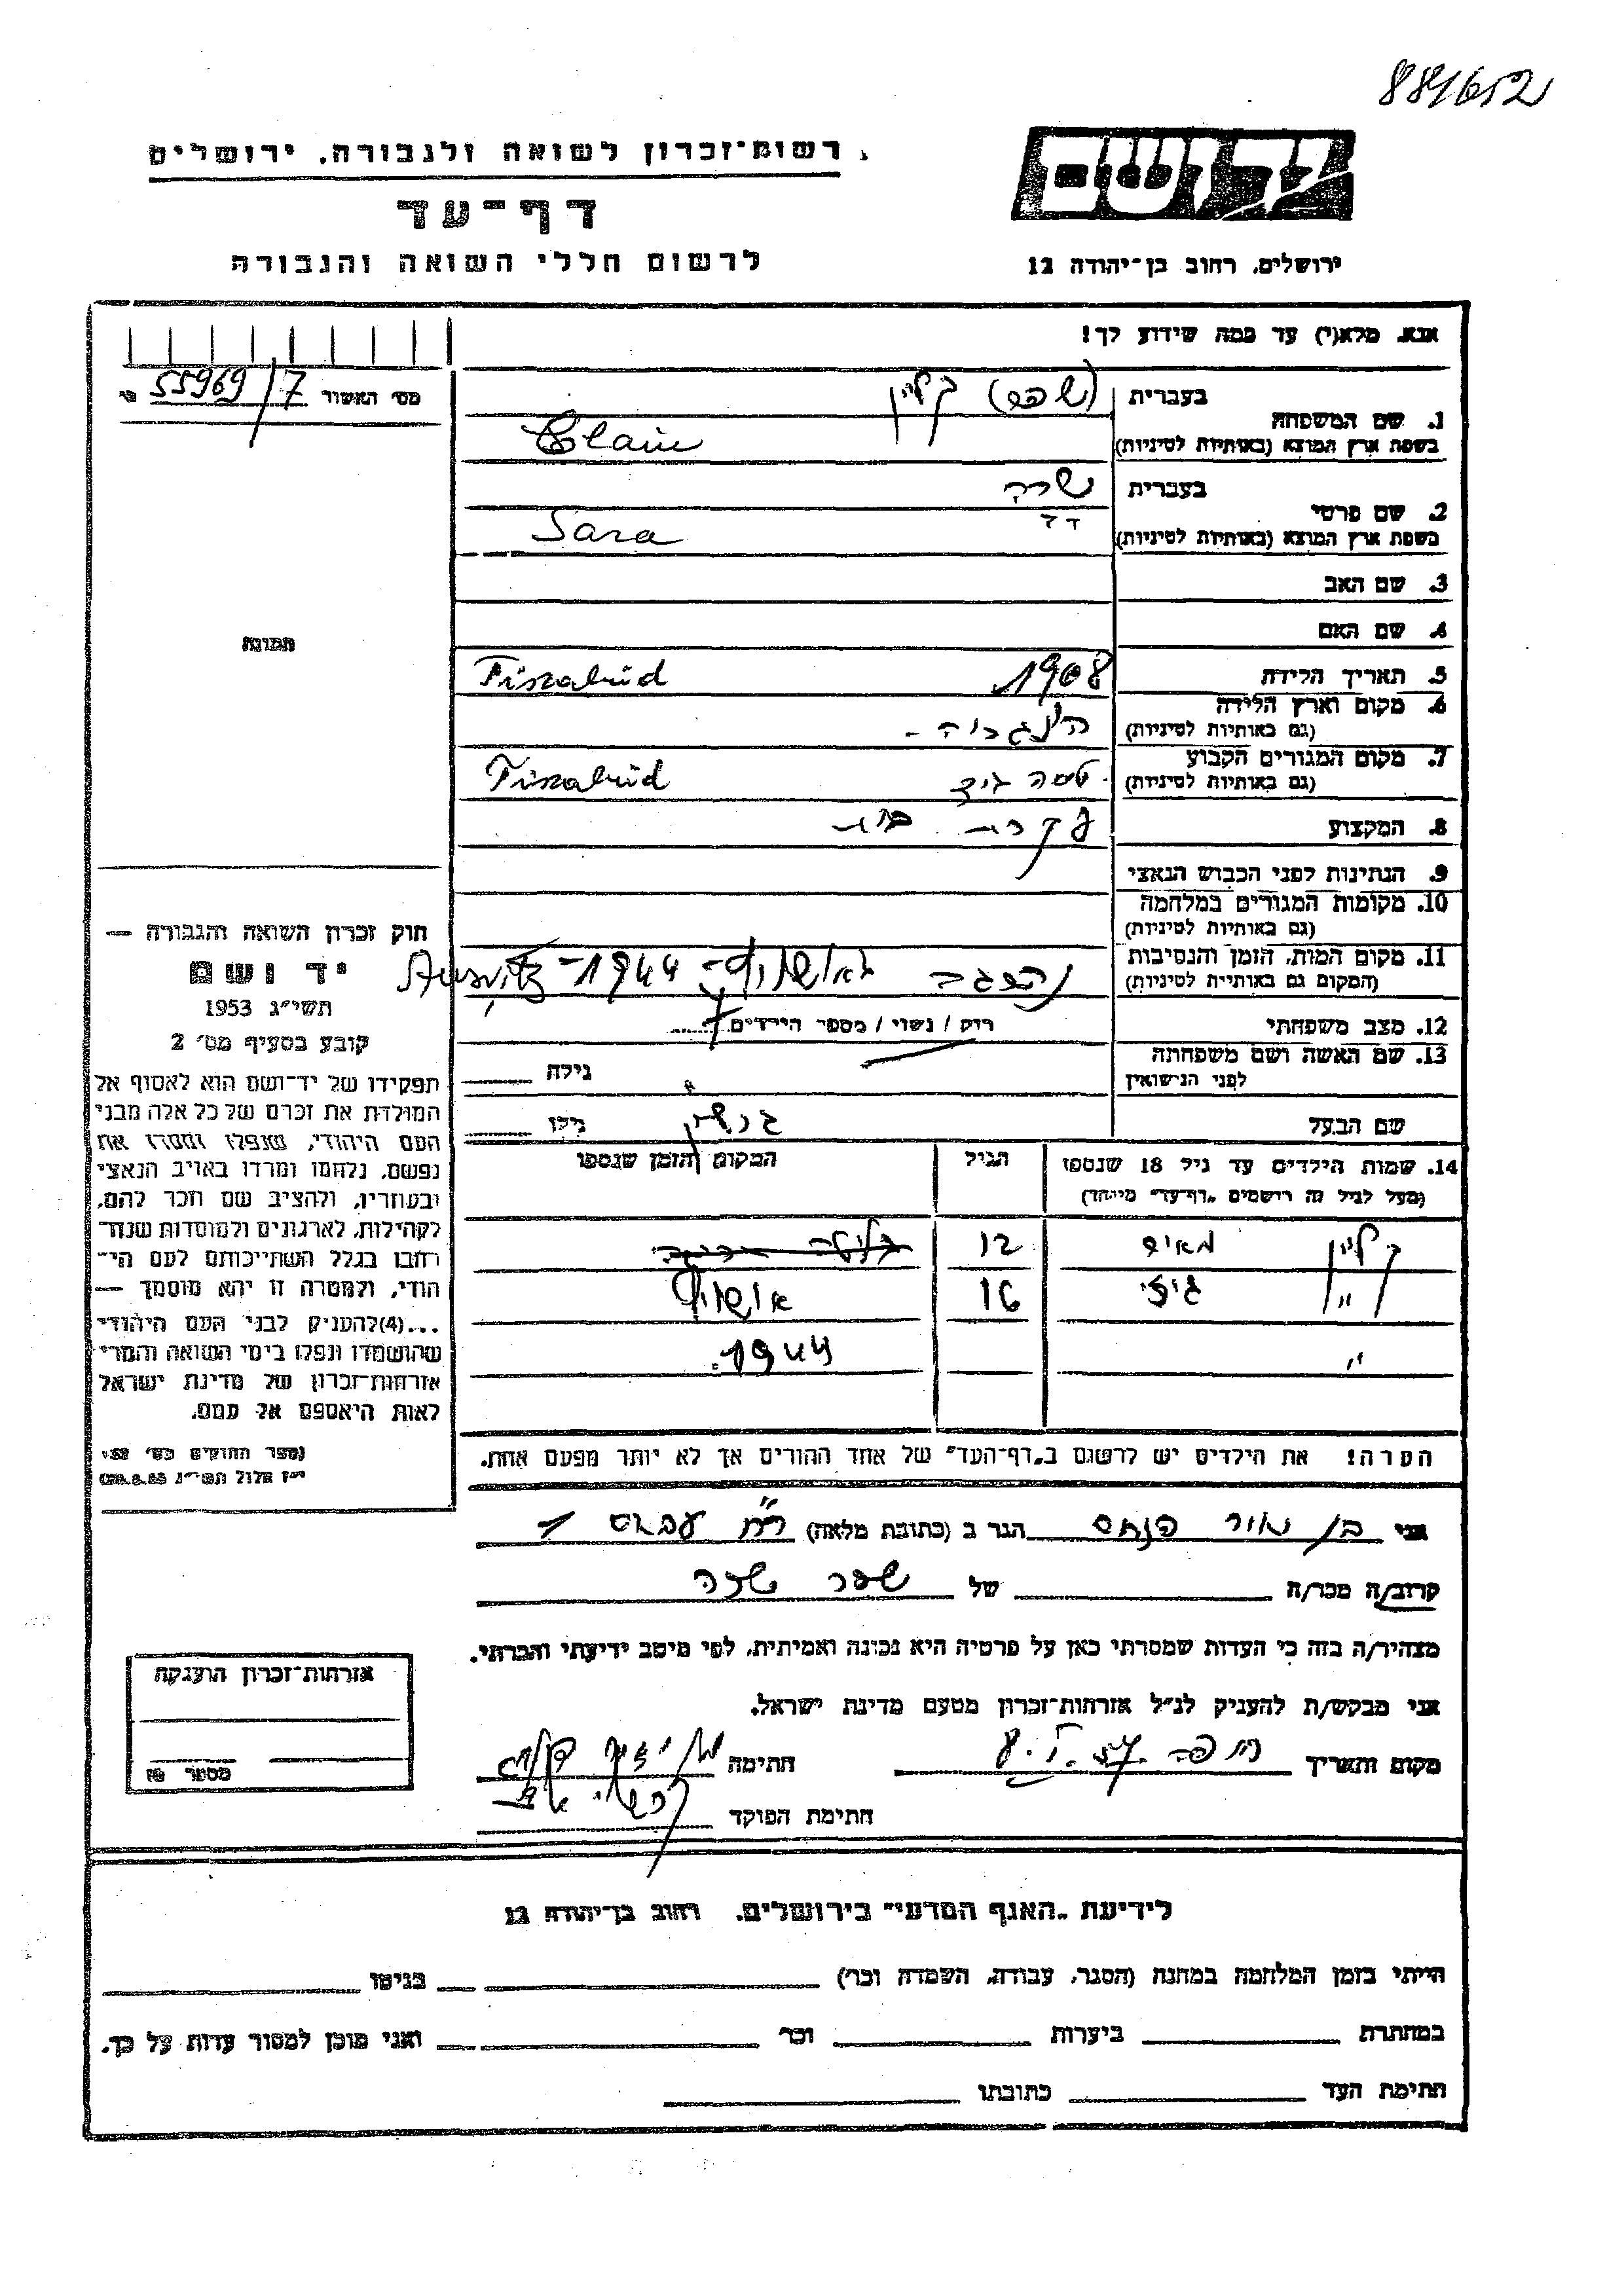 881652
רשות־זכרון לשואה ולגבורה. ירושלים
דף־עד
לרשום חללי השואה והגבורה
ירושלים, רחוב בן־יהודה 12
אנא, מלא(י) עד כמה שידוע לך!
מס׳ האשור 55969/7
1. שם המשפחה
בעברית קליין
בשפת ארץ המוצא (באותיות לטיניות) Clain
2. שם פרטי
בעברית שרה
בשפת ארץ המוצא (באותיות לטיניות) Sara
3. שם האב
4. שם האם
תמונה
5. תאריך הלידה 1908
6. מקום וארץ הלידה
(גם באותיות לטיניות) הונגריה -
7. מקום המגורים הקבוע
(גם באותיות לטיניות)
8. המקצוע עקרת בית
9. הנתינות לפני הכבוש הנאצי
10. מקומות המגורים במלחמה
(גם באותיות לטיניות)
11. מקום המות, הזמן והנסיבות
(המקום גם באותיות לטיניות) 1944
12. מצב משפחתי רווק / נשוי / מספר הילדים
13. שם האשה ושם משפחתה
לפני הנישואין גילה
שם הבעל גילו
14. שמות הילדים עד גיל 18 שנספו הגיל המקום והזמן שנספו
(מעל לגיל זה רושמים „דף־עד״ מיוחד)
קליין מאיר 12
" גיזי 16
" 1944.
חוק זכרון השואה והגבורה —
יד ושם
תשי״ג 1953
קובע בסעיף מס׳ 2
תפקידו של יד־ושם הוא לאסוף אל
המולדת את זכרם של כל אלה מבני
העם היהודי, שנפלו ומסרו את
נפשם, נלחמו ומרדו באויב הנאצי
ובעוזריו, ולהציב שם וזכר להם,
לקהילות, לארגונים ולמוסדות שנח־
רבו בגלל השתייכותם לעם הי־
הודי, ולמטרה זו יהא מוסמך —
...(4)להעניק לבני העם היהודי
שהושמדו ונפלו בימי השואה והמרי
אזרחות־זכרון של מדינת ישראל
לאות היאספם אל עמם.
הערה! את הילדים יש לרשום ב„דף־העד״ של אחד ההורים אך לא יותר מפעם אחת.
אני בן מאיר פנחס הגר ב (כתובת מלאה)
קרוב/ה מכר/ה של
מצהיר/ה בזה כי העדות שמסרתי כאן על פרטיה היא נכונה ואמיתית, לפי מיטב ידיעתי והכרתי.
אני מבקש/ת להעניק לנ״ל אזרחות־זכרון מטעם מדינת ישראל.
מקום ותאריך חיפה חתימה
חתימת הפוקד
אזרחות־זכרון הוענקה
לידיעת „האגף המדעי״ בירושלים. רחוב בן־יהודה 12
הייתי בזמן המלחמה במחנה (הסגר, עבודה, השמדה וכו׳) בגיטו
במחתרת ביערות וכו׳ ואני מוכן למסור עדות על כך.
חתימת העד כתובתו